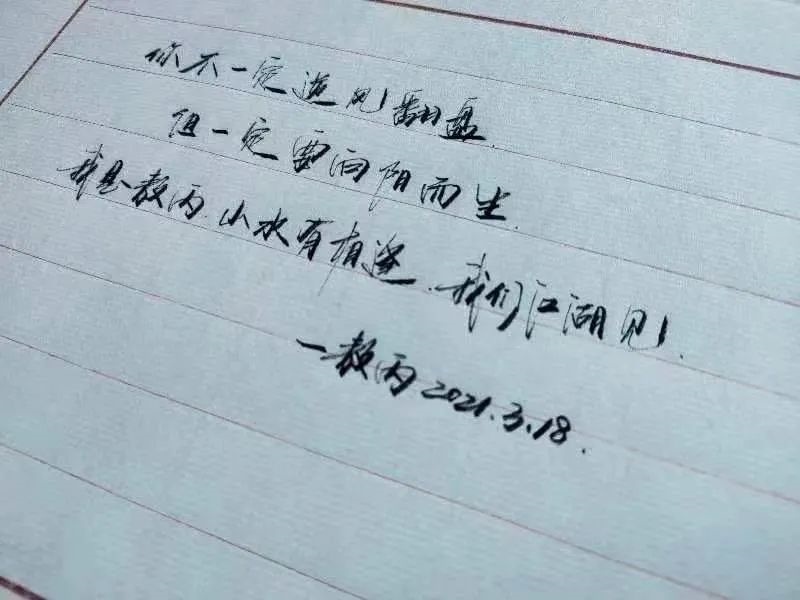 你不一定逆风翻盘
但一定要向阳而生.
我是教丙.山水有相逢.我们江湖见.
一教丙 2021.3.18.